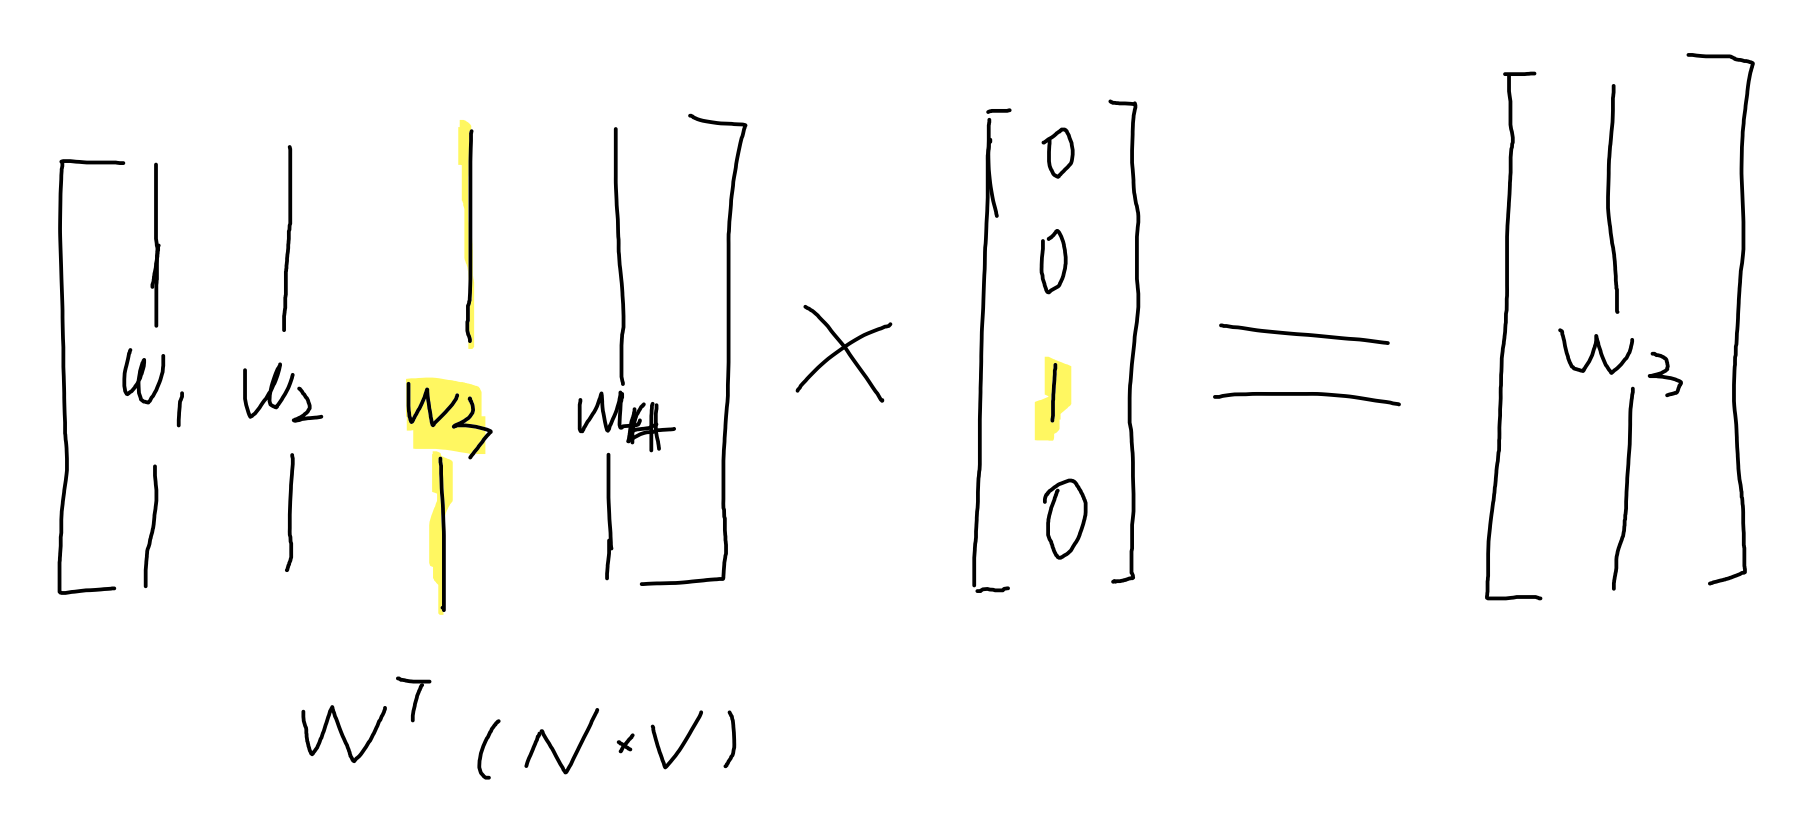 w₁ w₂ w₃ w₄ × 0 0 1 0 = w₃
Wᵀ (N×V)